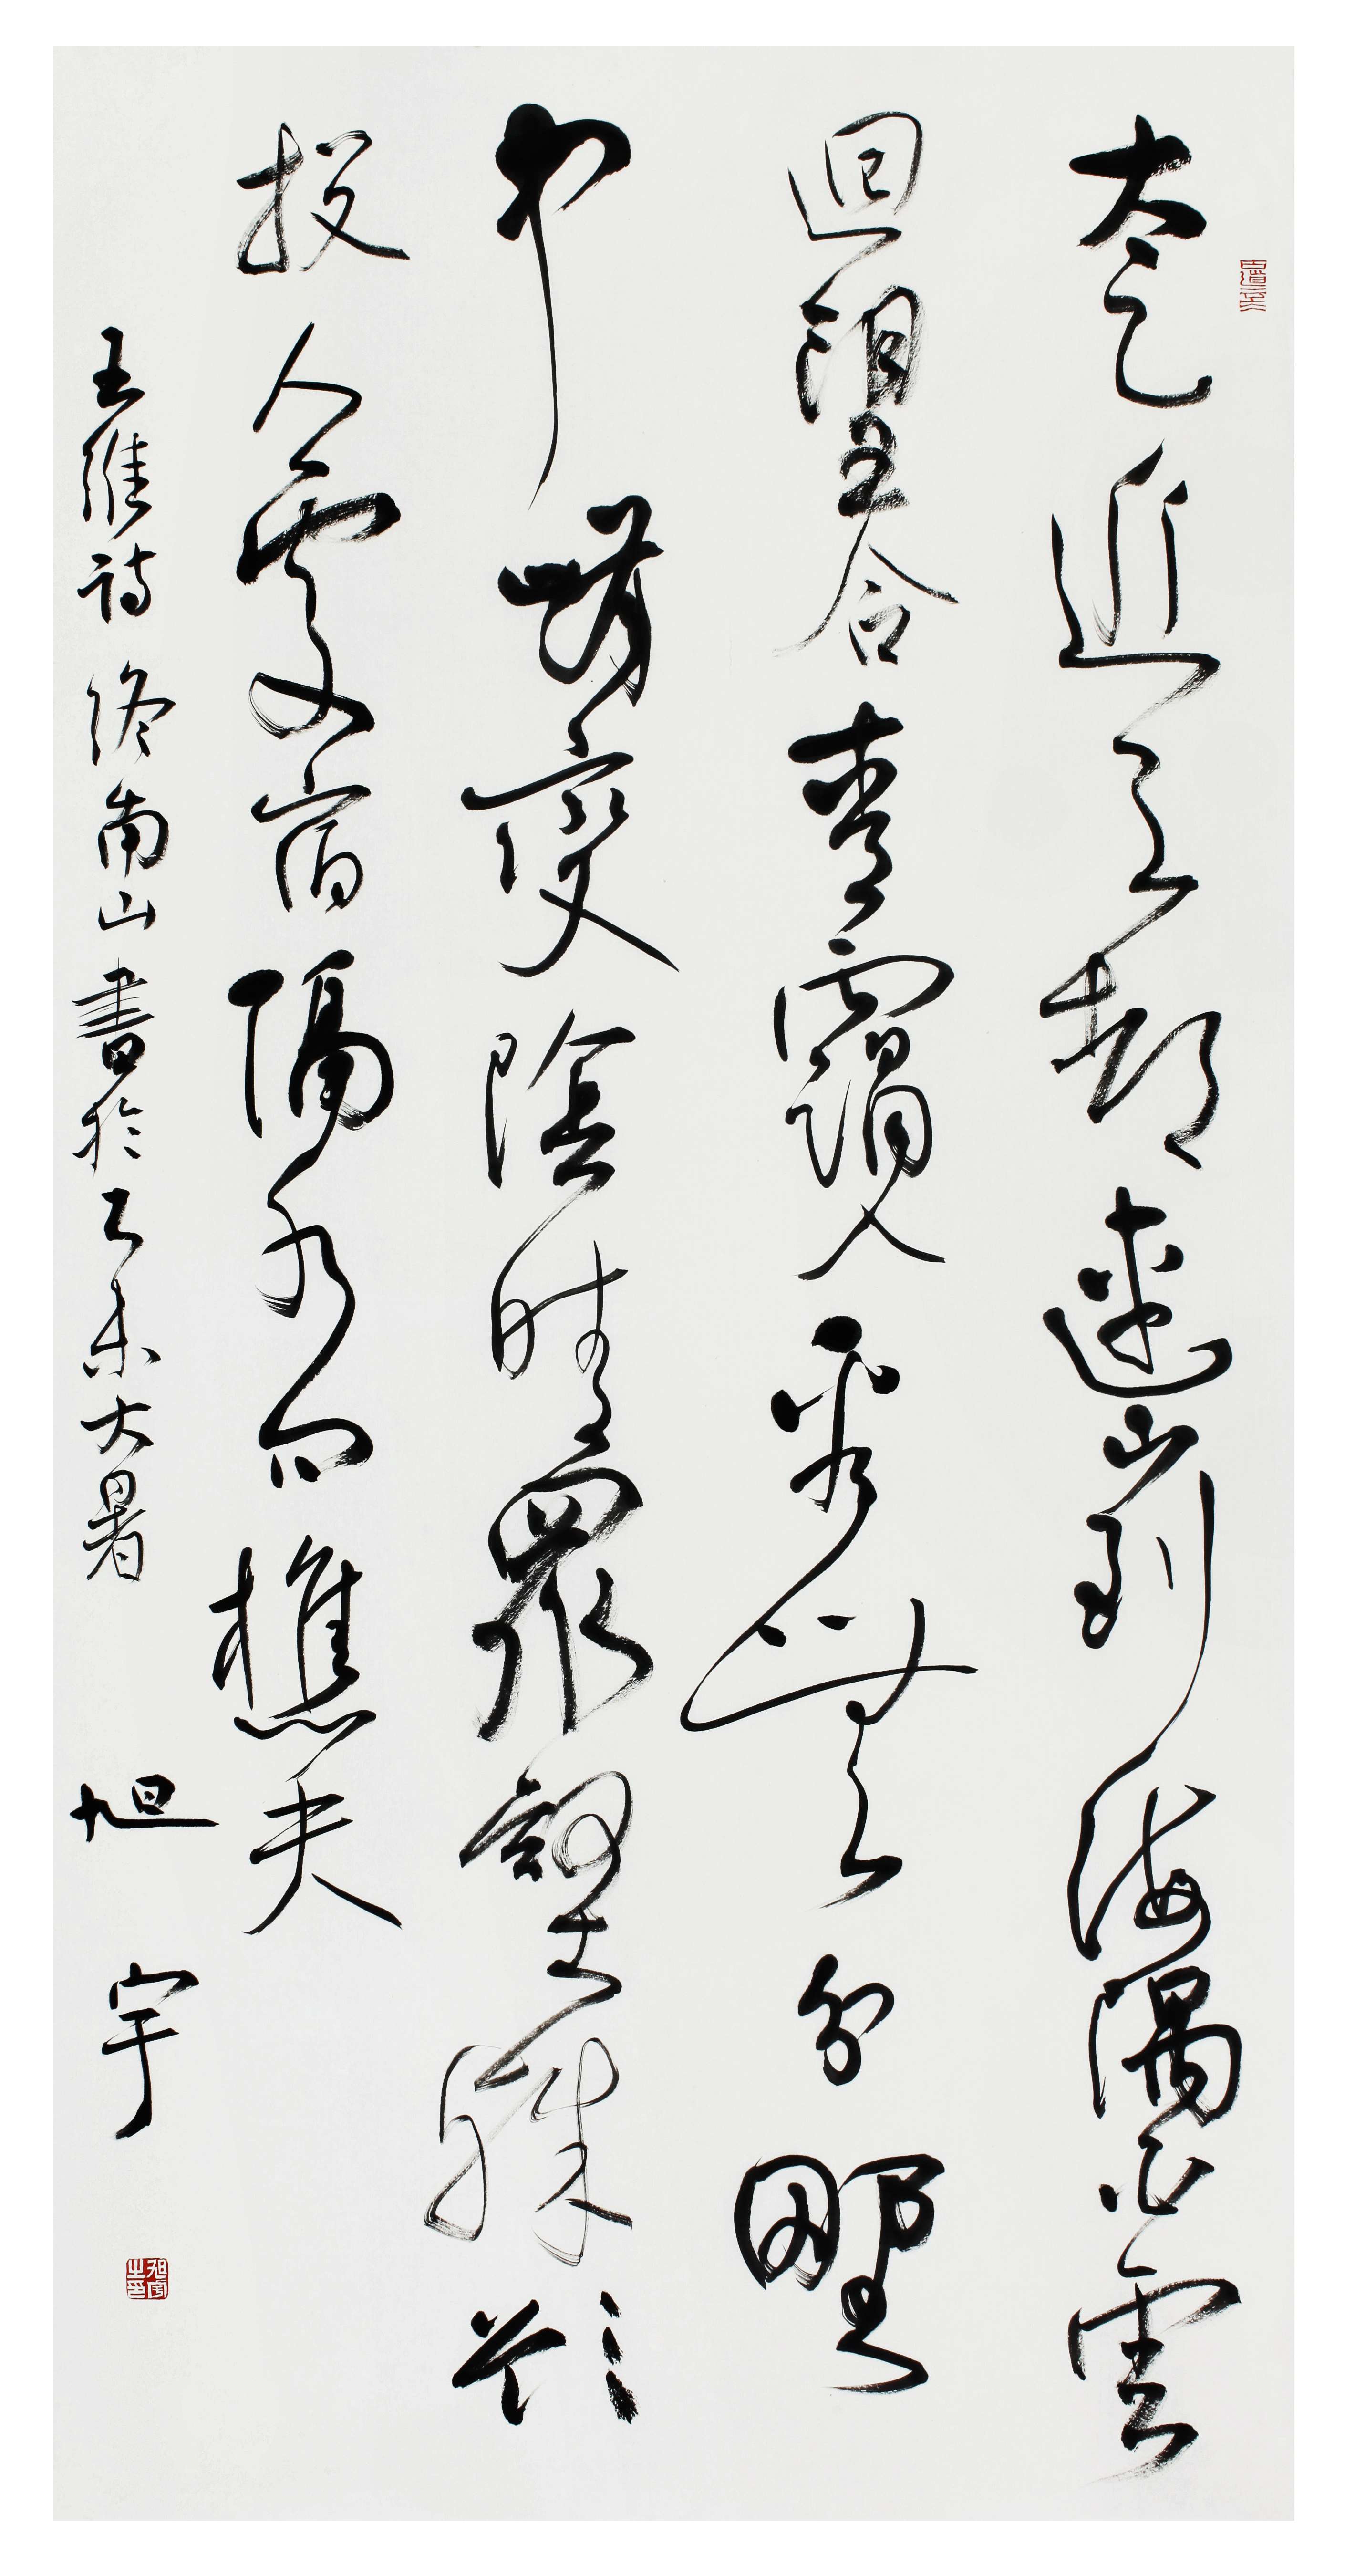 太乙近天都遠山到海隅白雲
迴望合青靄入看無分野
中峰變陰晴眾壑殊欲
投人處宿隔水問樵夫
王維詩終南山書於乙未大暑 旭宇
旭宇之印